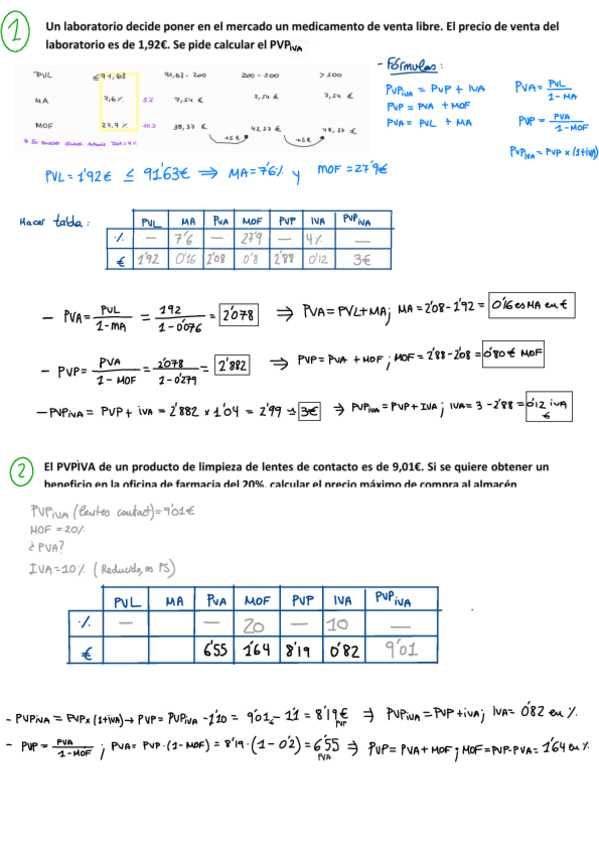 1 Un laboratorio decide poner en el mercado un medicamento de venta libre. El precio de venta del
laboratorio es de 1,92€. Se pide calcular el PVPIVA
- Fórmulas:
PVL ≤91,63 91,63-200 200-500 >500
MA 7,6% 5% 7,54 € 7,54 € 7,54 €
MOF 27,9% 10% 38,37 € 43,37 € 48,37 €
+5€ +5€
PVPIVA = PVP + IVA
PVP = PVA + MOF
PVA = PVL + MA
PVA = PVL / 1-MA
PVP = PVA / 1-MOF
PVPIVA = PVP x (1+IVA)
PVL = 1'92€ ≤ 91'63€ ⇒ MA = 7'6% y MOF = 27'9€
Hacer tabla:
PVL MA PVA MOF PVP IVA PVPIVA
% — 7'6 — 27'9 — 4% —
€ 1'92 0'16 2'08 0'8 2'88 0'12 3€
- PVA = PVL / 1-MA = 192 / 1-0'076 = 2'078 ⇒ PVA = PVL+MA; MA = 2'08-1'92 = 0'16 es MA en €
- PVP = PVA / 1-MOF = 2'078 / 1-0'279 = 2'882 ⇒ PVP = PVA + MOF; MOF = 2'88-2'08 = 0'80€ MOF
- PVPIVA = PVP + IVA = 2'882 x 1'04 = 2'99 ≃ 3€ ⇒ PVPIVA = PVP + IVA; IVA = 3 - 2'88 = 0'12 IVA €
2 El PVPIVA de un producto de limpieza de lentes de contacto es de 9,01€. Si se quiere obtener un
beneficio en la oficina de farmacia del 20%, calcular el precio máximo de compra al almacén
PVPIVA (lentes contact) = 9'01€
MOF = 20%
¿PVA?
IVA = 10% (Reducido, es PS)
PVL MA PVA MOF PVP IVA PVPIVA
% — — — 20 — 10 —
€ 6'55 1'64 8'19 0'82 9'01
- PVPIVA = PVP x (1+IVA) → PVP = PVPIVA - 1'10 = 9'01 - 1'1 = 8'19€ PVP ⇒ PVPIVA = PVP + IVA; IVA = 0'82 en %.
- PVP = PVA / 1-MOF ; PVA = PVP · (1-MOF) = 8'19 · (1-0'2) = 6'55 PVA ⇒ PVP = PVA + MOF; MOF = PVP-PVA = 1'64 en %.